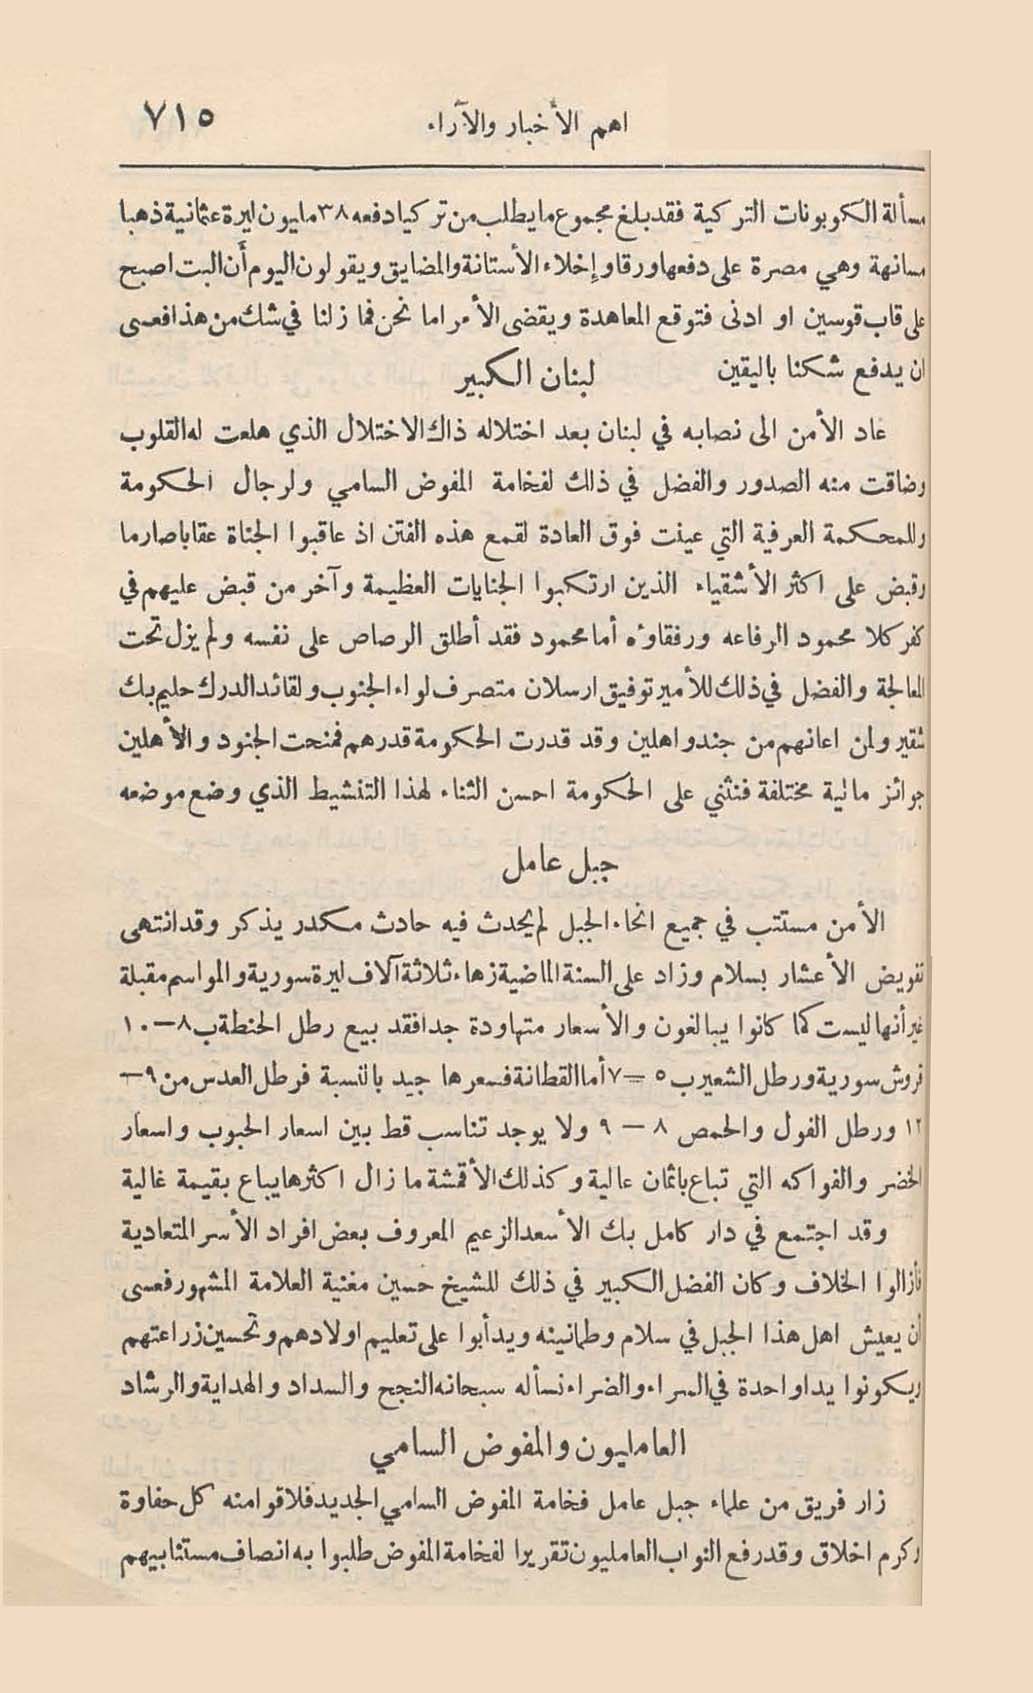 اهم الأخبار والآراء ٧١٥
مسألة الكوبونات التركية فقد بلغ مجموع ما يطلب من تركيا دفعه ٣٨ مليون ليرة عثمانية ذهبا
مسانهة وهي مصرة على دفعها ورقا وإخلاء الأستانة والمضايق ويقولون اليوم أن البت اصبح
على قاب قوسين او ادنى فتوقع المعاهدة ويقضى الأمر اما نحن فما زلنا في شك من هذا فعسى
ان يدفع شكنا باليقين
لبنان الكبير
عاد الأمن الى نصابه في لبنان بعد اختلاله ذاك الاختلال الذي هلعت له القلوب
وضاقت منه الصدور والفضل في ذلك لفخامة المفوض السامي ولرجال الحكومة
وللمحكمة العرفية التي عينت فوق العادة لقمع هذه الفتن اذ عاقبوا الجناة عقابا صارما
وقبض على اكثر الأشقياء الذين ارتكبوا الجنايات العظيمة وآخر من قبض عليهم في
كفر كلا محمود الرفاعه ورفقاؤه أما محمود فقد أطلق الرصاص على نفسه ولم يزل تحت
المعالجة والفضل في ذلك للأمير توفيق ارسلان متصرف لواء الجنوب ولقائد الدرك حليم بك
شقير ولمن اعانهم من جند واهلين وقد قدرت الحكومة قدرهم فمنحت الجنود والأهلين
جوائز مالية مختلفة فنثني على الحكومة احسن الثناء لهذا التنشيط الذي وضع موضعه
جبل عامل
الأمن مستتب في جميع انحاء الجبل لم يحدث فيه حادث مكدر يذكر وقد انتهى
تفويض الأعشار بسلام وزاد على السنة الماضية زهاء ثلاثة آلاف ليرة سورية والمواسم مقبلة
غير أنها ليست كما كانوا يبالغون والأسعار متهاودة جدا فقد بيع رطل الحنطة ب ٨ — ١٠
قروش سورية ورطل الشعير ب ٥ — ٧ أما القطانة فسعرها جيد بالنسبة فرطل العدس من ٩ —
١٢ ورطل الفول والحمص ٨ — ٩ ولا يوجد تناسب قط بين اسعار الحبوب واسعار
الخضر والفواكه التي تباع باثمان عالية وكذلك الأقمشة ما زال اكثرها يباع بقيمة غالية
وقد اجتمع في دار كامل بك الأسعد الزعيم المعروف بعض افراد الأسر المتعادية
فأزالوا الخلاف وكان الفضل الكبير في ذلك للشيخ حسين مغنية العلامة المشهور فعسى
أن يعيش اهل هذا الجبل في سلام وطمانينه ويدأبوا على تعليم اولادهم وتحسين زراعتهم
ويكونوا يدا واحدة في السراء والضراء نسأله سبحانه النجح والسداد والهداية والرشاد
العامليون والمفوض السامي
زار فريق من علماء جبل عامل فخامة المفوض السامي الجديد فلاقوا منه كل حفاوة
وكرم اخلاق وقد رفع النواب العامليون تقريرا لفخامة المفوض طلبوا به انصاف مستنابيهم